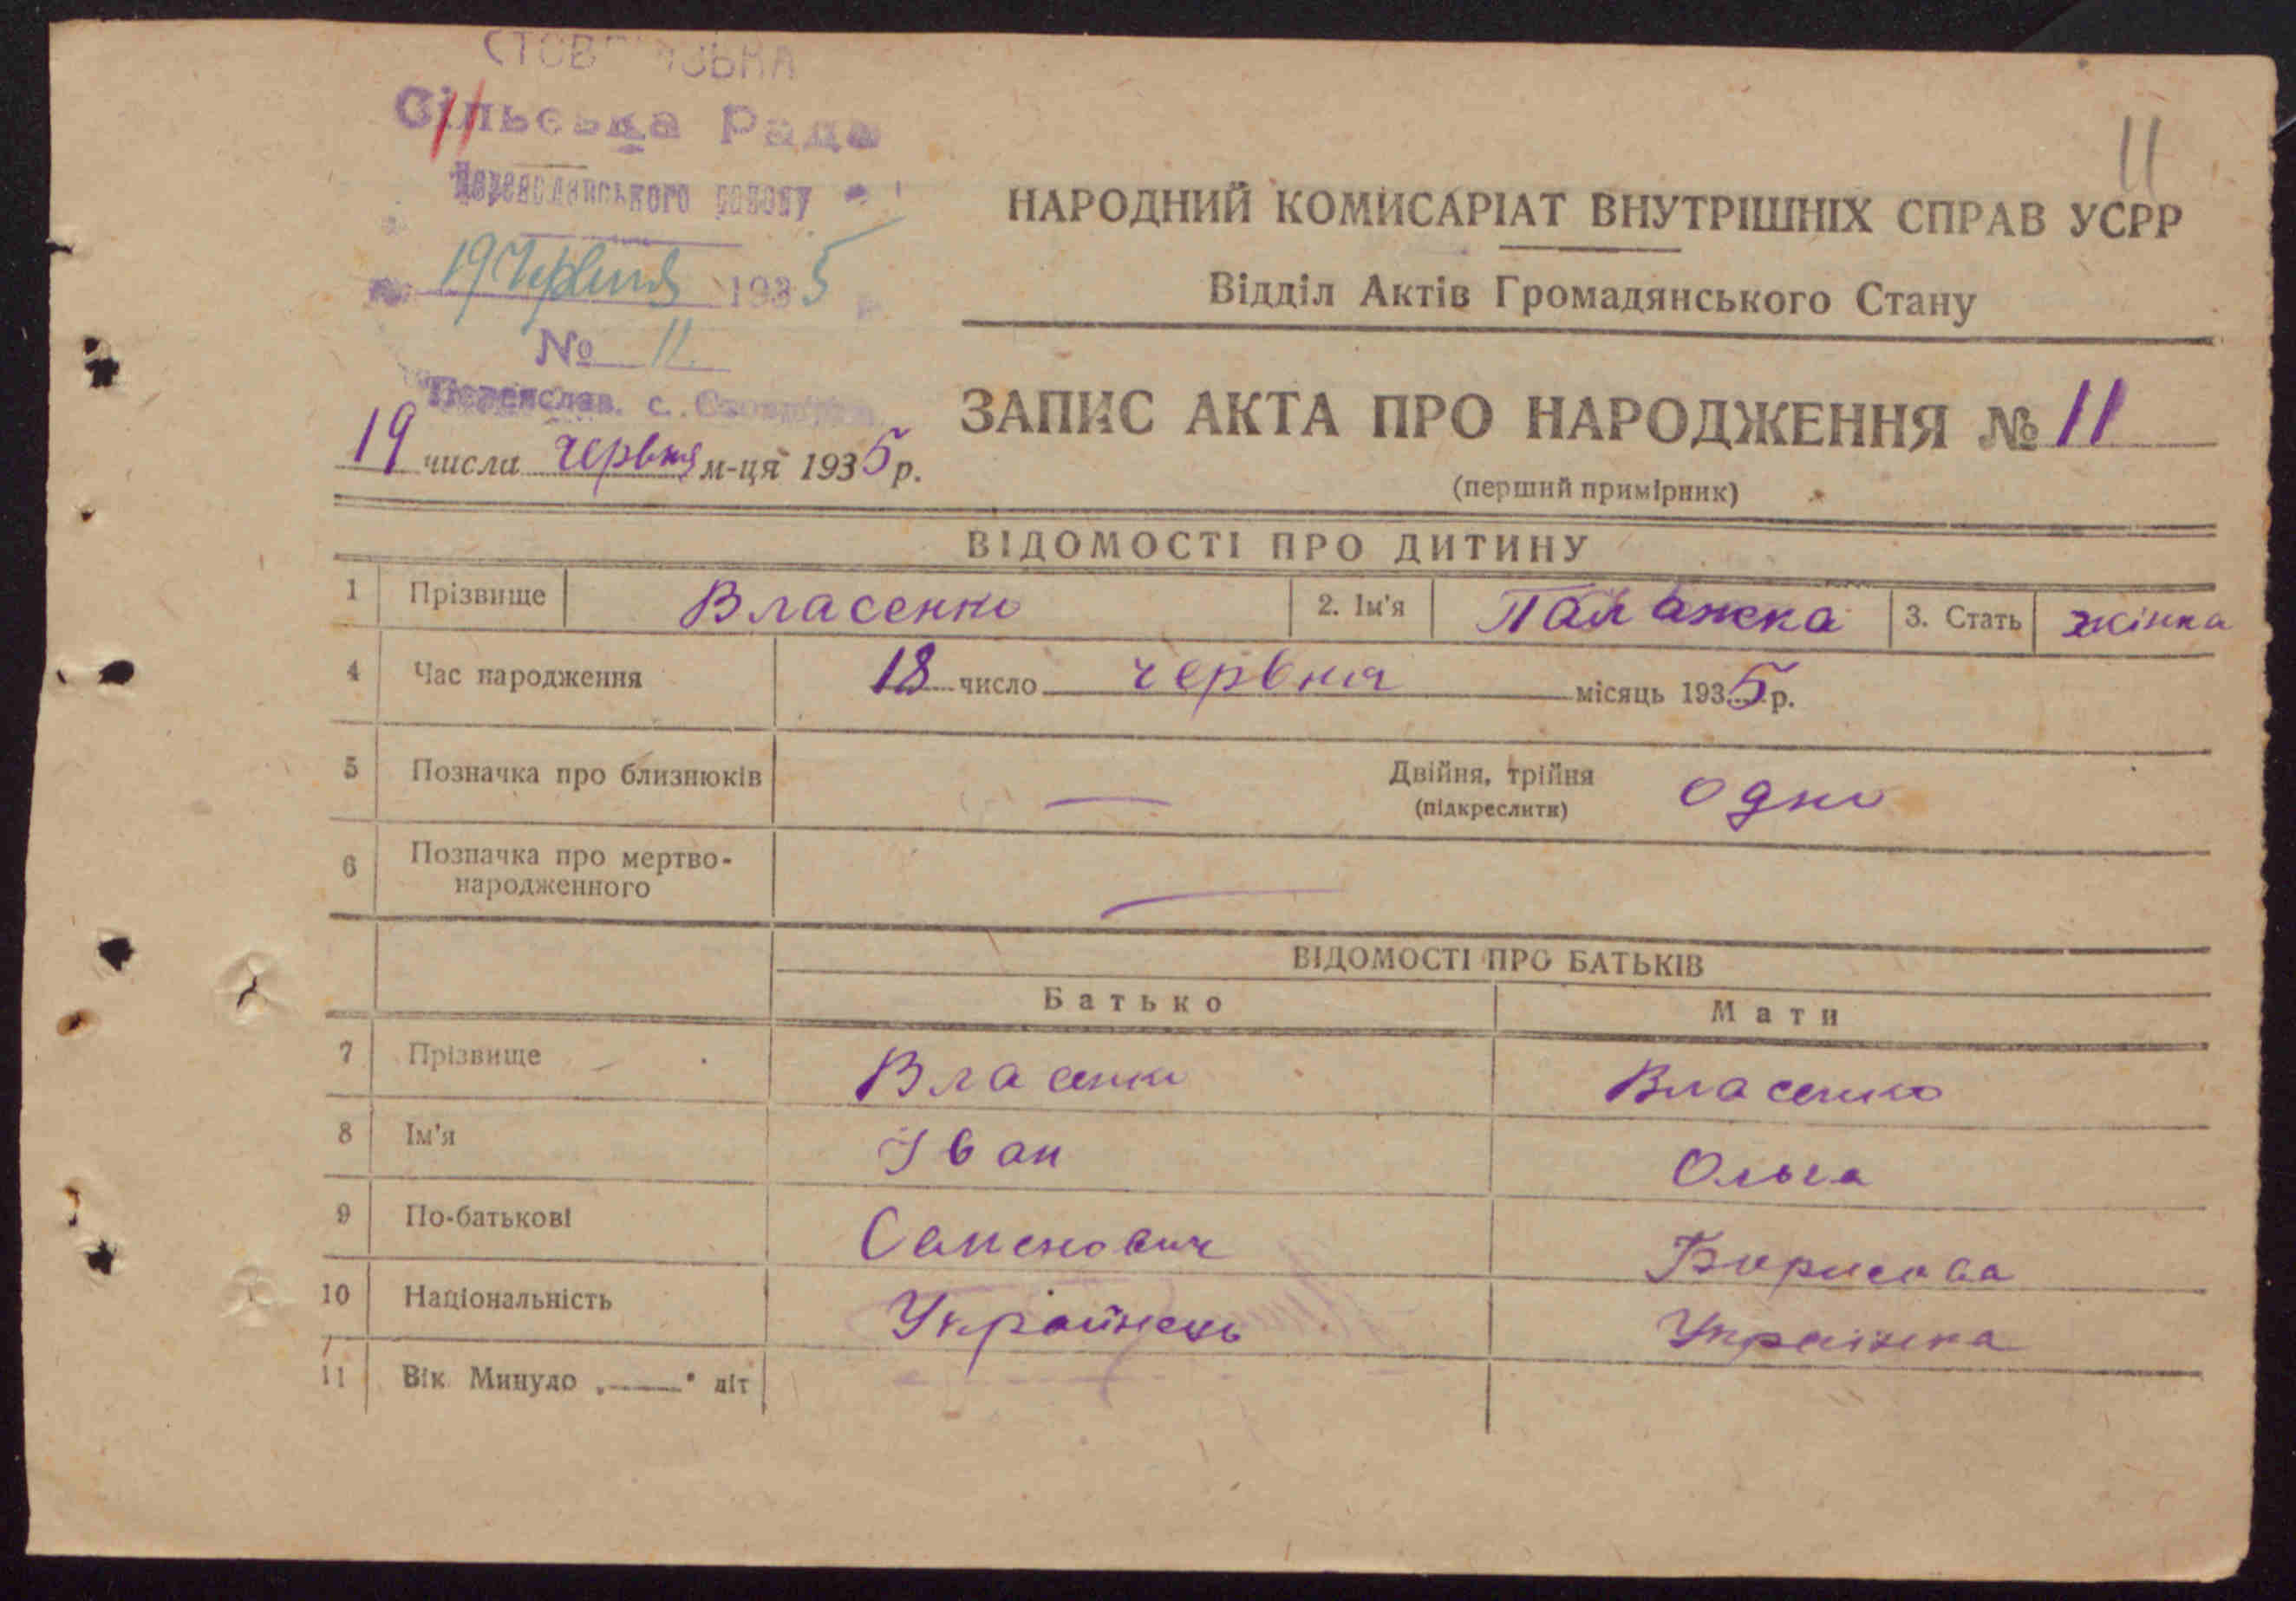 Сільська Рада
Переяславського району
19 Червня 1935
№ 11
Переяслав. с.
11
НАРОДНИЙ КОМИСАРІАТ ВНУТРІШНІХ СПРАВ УСРР
Відділ Актів Громадянського Стану
ЗАПИС АКТА ПРО НАРОДЖЕННЯ № 11
(перший примірник)
19 числа червня м-ця 1935 р.
ВІДОМОСТІ ПРО ДИТИНУ
1 Прізвище Власенко 2. Ім'я Палажка 3. Стать жінка
4 Час народження 18 число червня місяць 1935 р.
5 Позначка про близнюків — Двійня, трійня одно
(підкреслити)
6 Позначка про мертво-
народженного —
ВІДОМОСТІ ПРО БАТЬКІВ
Батько Мати
7 Прізвище Власенко Власенко
8 Ім'я Іван Ольга
9 По-батькові Семенович Борисова
10 Національність Українець Українка
11 Вік Минуло „——" літ